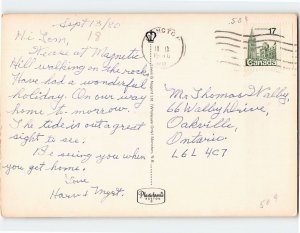 Sept 13/80
Hi Tom, 18
We are at Magnetic
Hill walking on the rocks
Have had a wonderful
holiday. On our way
home to-morrow.
The tide is out a great
sight to see.
Be seeing you when
you get home.
Love
50¢
17
Canada
Mr. Thomas Walby,
66 Walby Drive,
Oakville,
Ontario.
L6L 4C7
Plastichrome
BOSTON
50¢